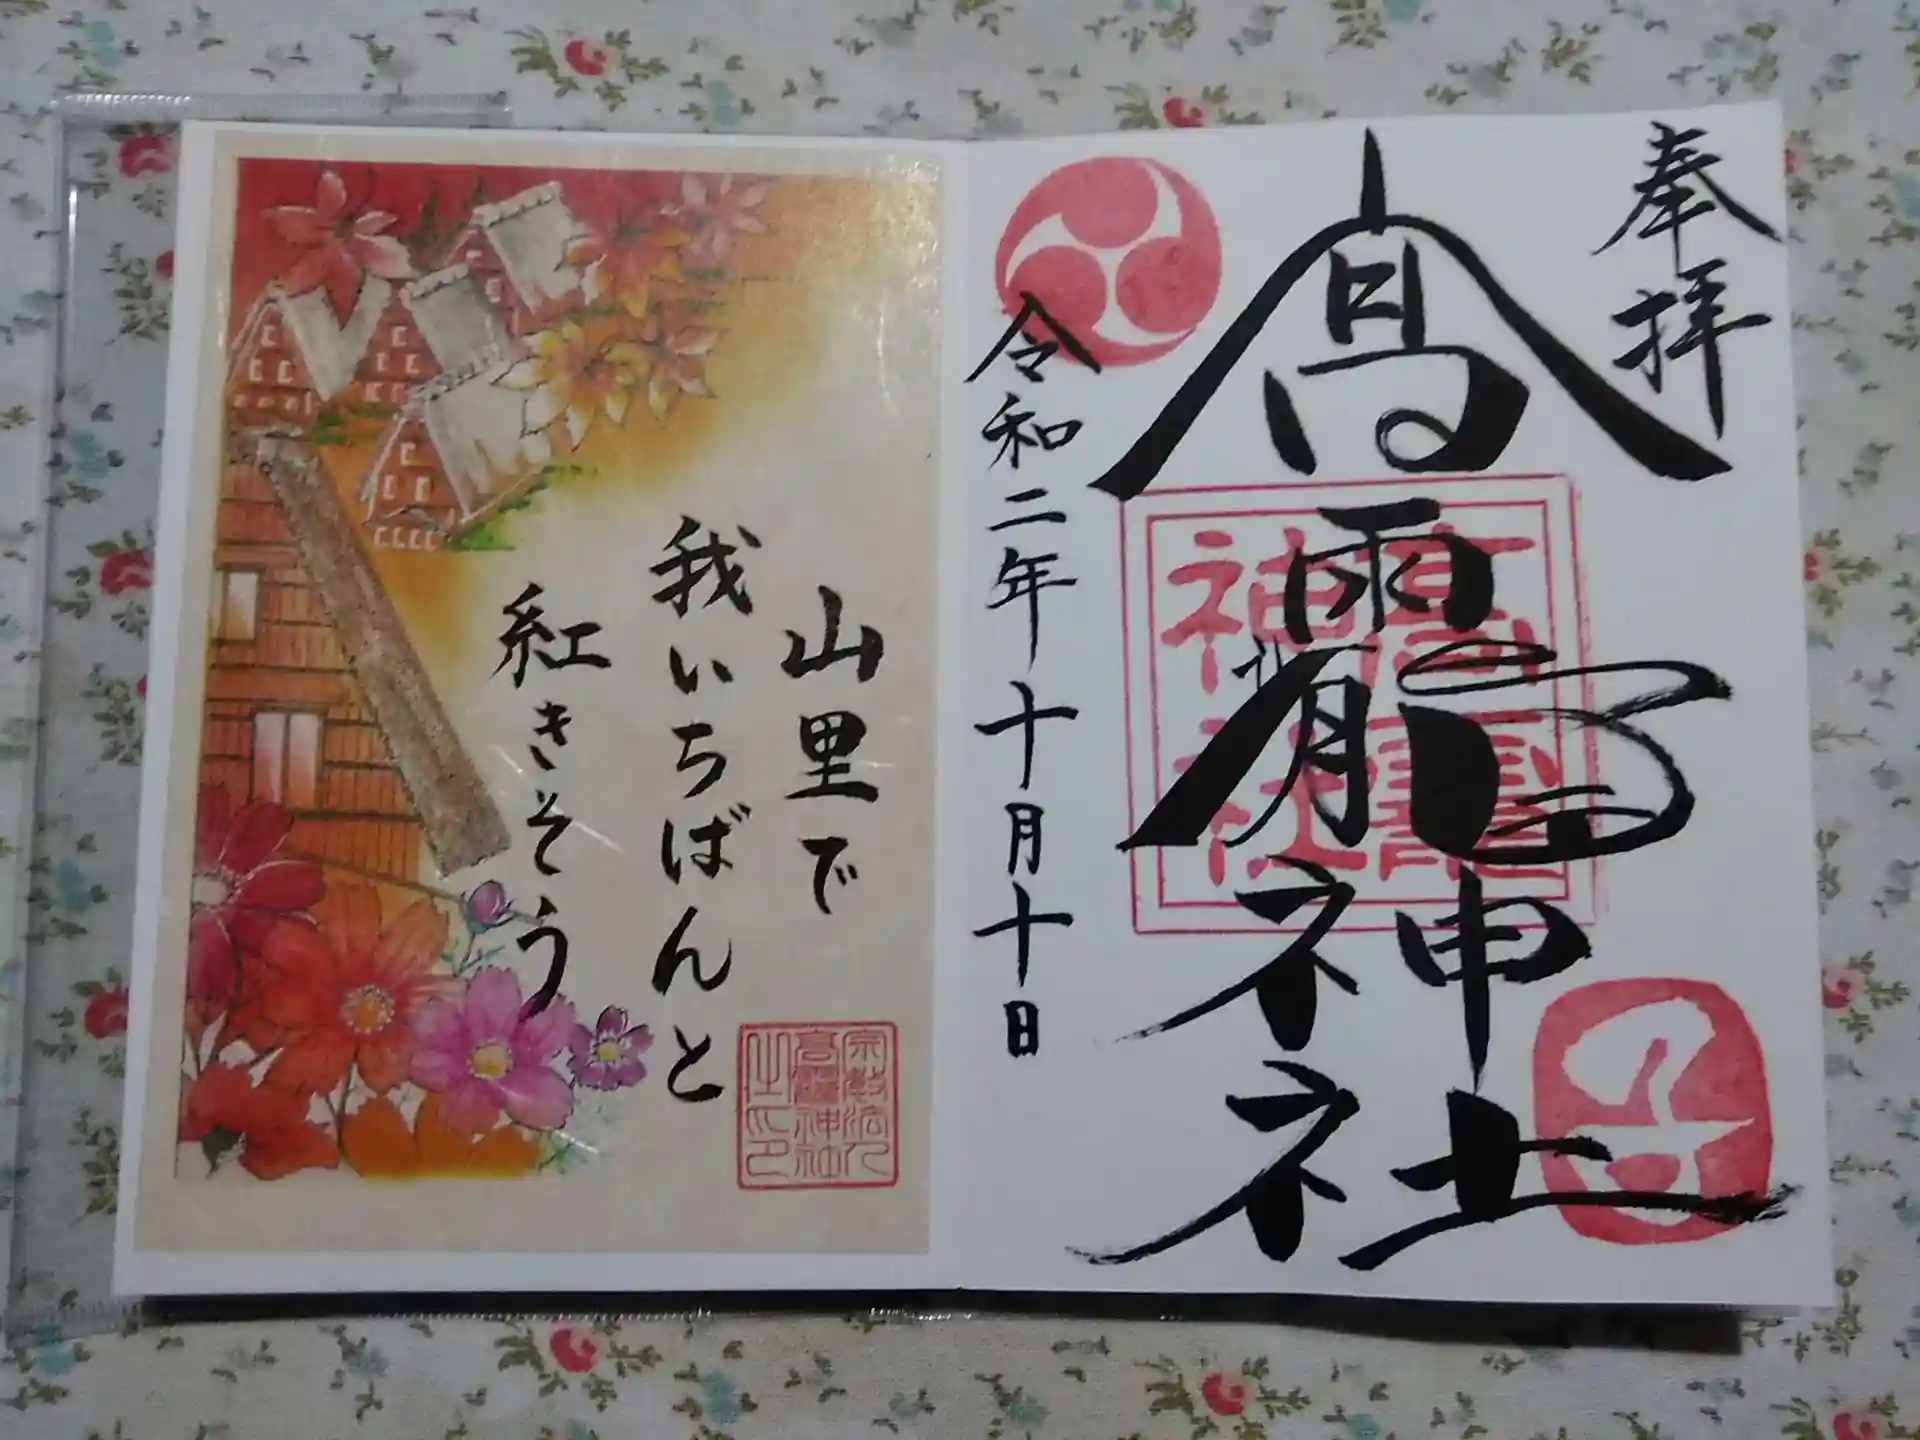 奉拝
高靇神社
令和二年十月十日
高靇
神社
山里で
我いちばんと
紅きそう
宗教法人
高靇神社
之印